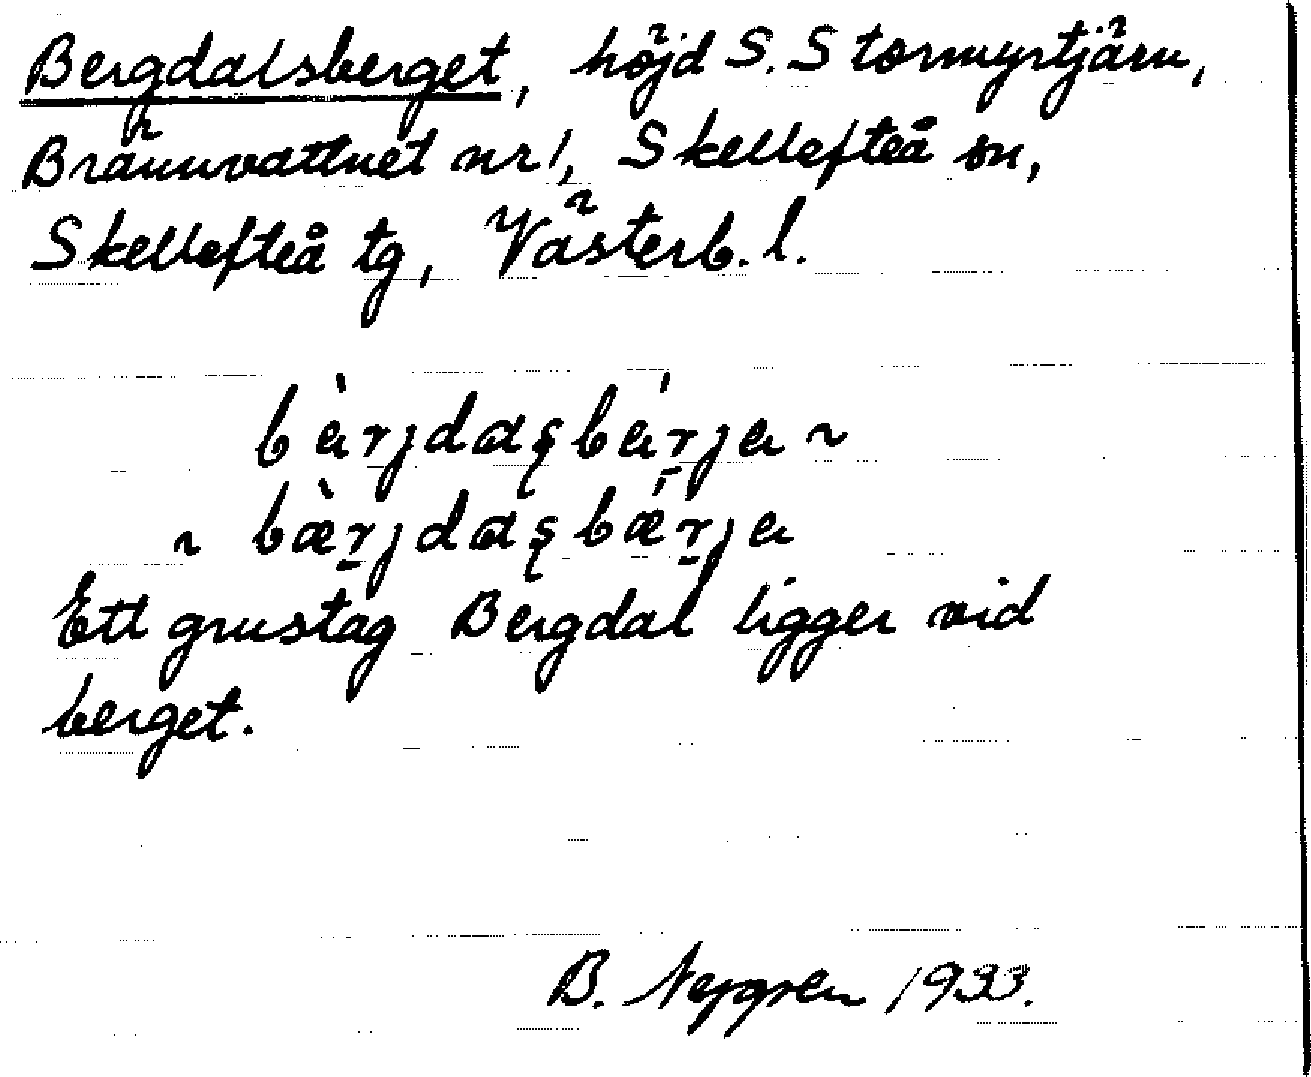 Bergdalsberget, höjd S. Stormyrtjärn,
Brännvattnet nr 1, Skellefteå sn,
Skellefteå tg, Västerb. l.
bàrjdaʂbárja ~
~ bæ̀rjdaʂbǽrja
Ett grustag Bergdal ligger vid
berget.
B. 1933.